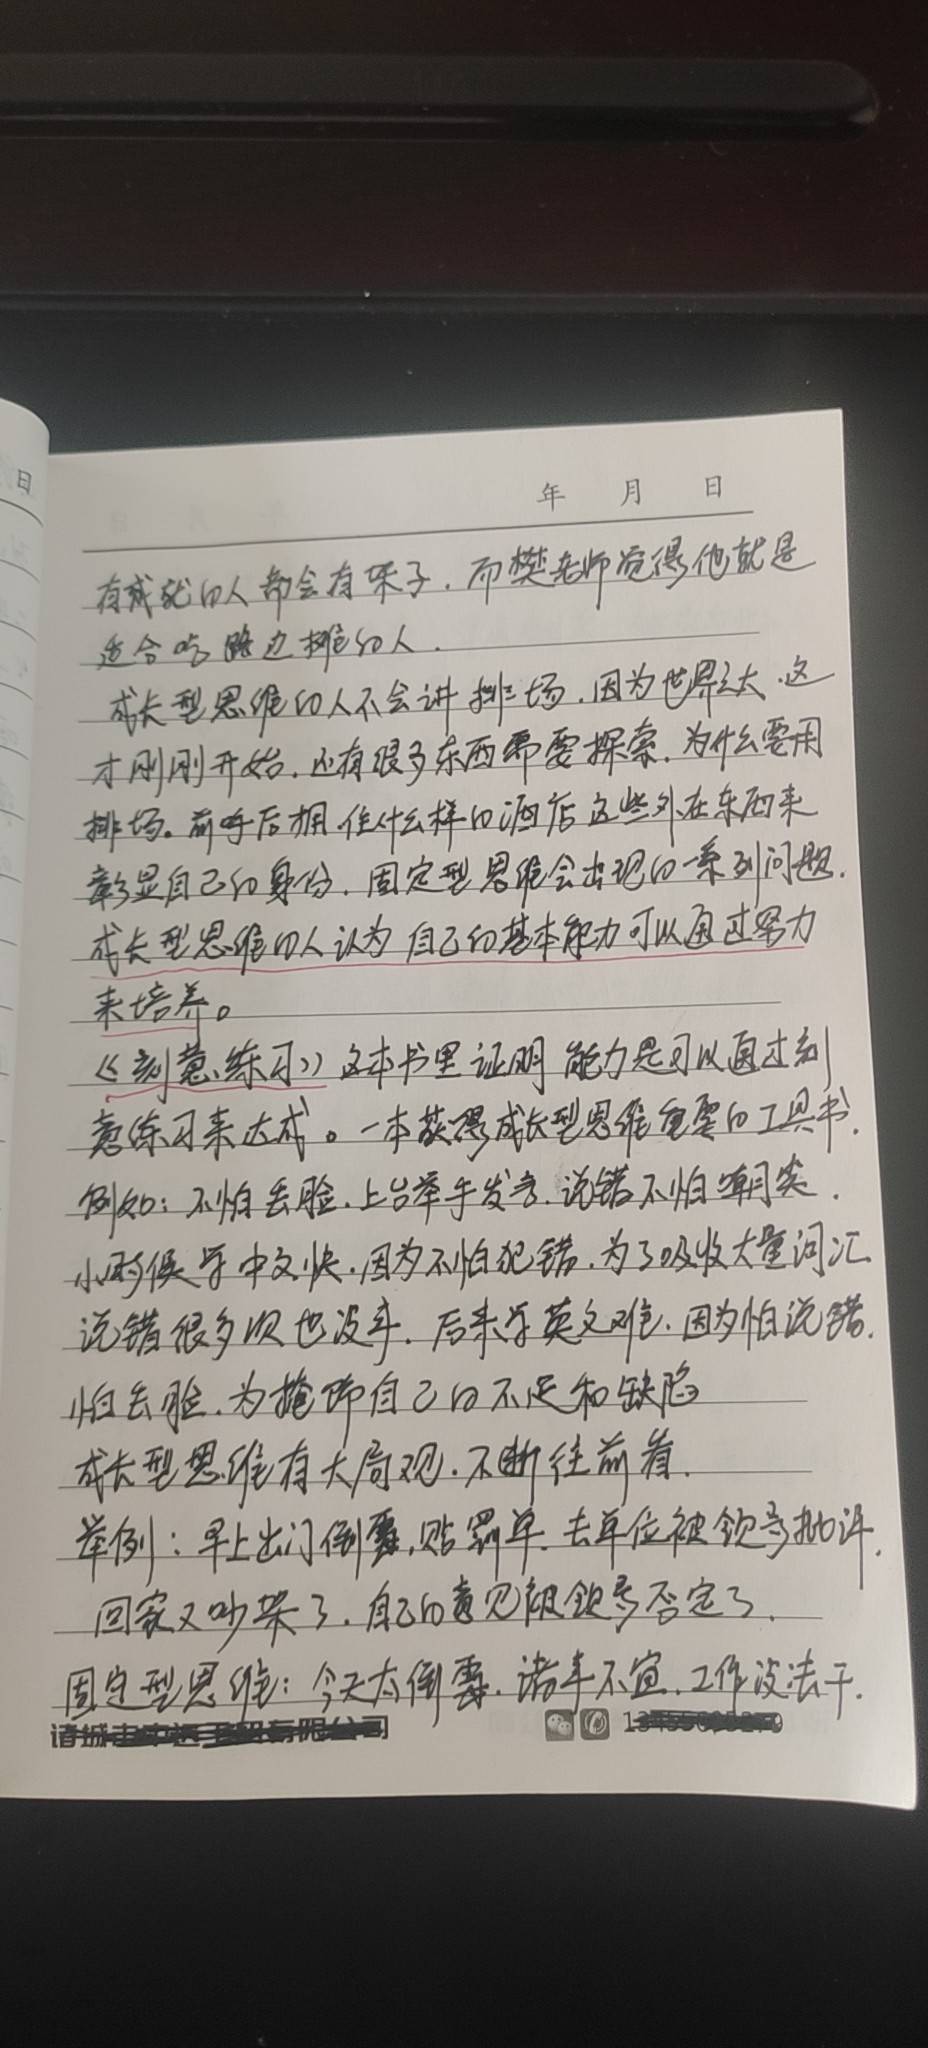 日
年 月 日
有成就的人都会有架子.而樊老师觉得他就是
适合吃路边摊的人.
成长型思维的人不会讲排场.因为世界之大.这
才刚刚开始.还有很多东西需要探索.为什么要用
排场。前呼后拥 住什么样的酒店这些外在东西来
彰显自己的身份.固定型思维会出现的一系列问题.
成长型思维的人认为自己的基本能力可以通过努力
来培养。
《刻意练习》这本书里证明 能力是可以通过刻
意练习来达成。一本获得成长型思维重要的工具书.
例如:不怕丢脸.上台举手发言.说错不怕嘲笑.
小时候学中文快.因为不怕犯错.为了吸收大量词汇
说错很多次也没事.后来学英文难.因为怕说错.
怕丢脸.为掩饰自己的不足和缺陷
成长型思维有大局观.不断往前看.
举例:早上出门倒霉,贴罚单.去单位被领导批评.
回家又吵架了.自己的意见被领导否定了.
固定型思维:今天太倒霉.诸事不宜.工作没法干.
诸城市 有限公司